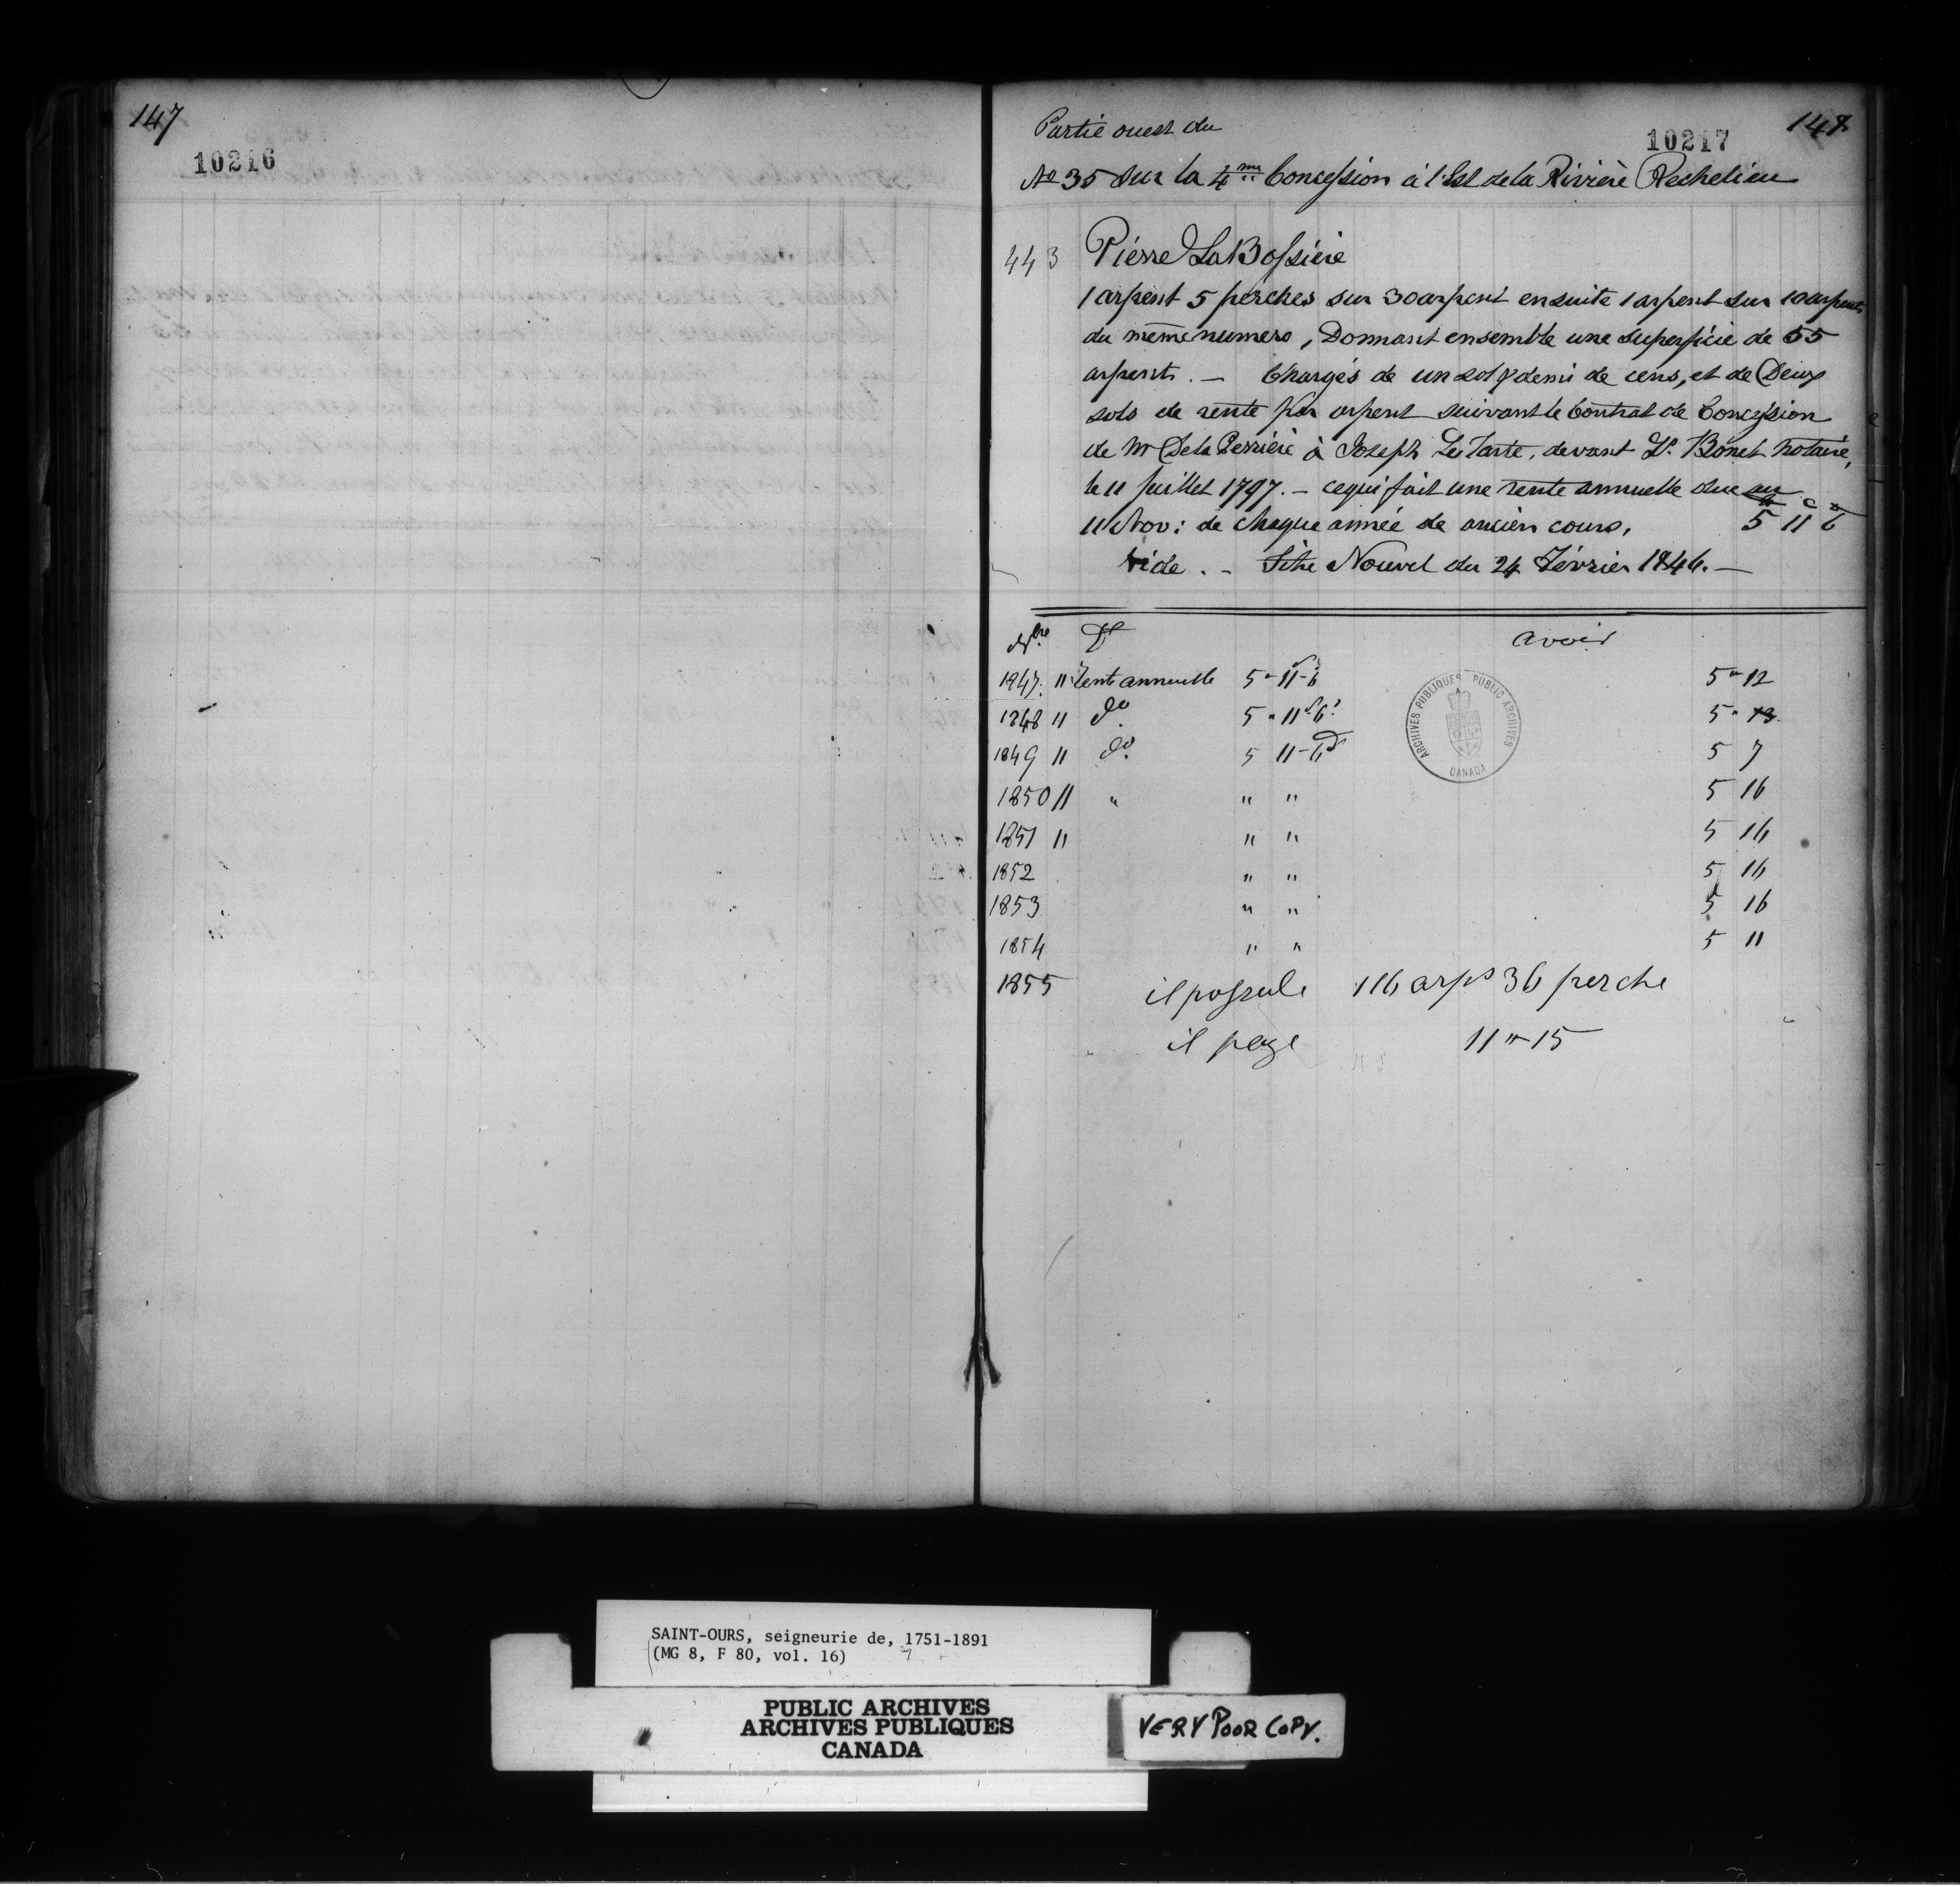 147
10216
Partie ouest du
10217
148
No 35 sur la 4me Concession à l'Est de la Rivière Rechelieu
443 Piérre LaBossiére
1 arpent 5 perches sur 30 arpent ensuite 1 arpent sur 10 arpents
du même numero, Donnant ensemble une superficie de 55
arpents. — Chargés de un sol & demi de cens, et de Deux
sols de rente par arpent suivant le Contrat de Concession
de Mr De la Perrière à Joseph LeTarte, devant Ls. Bonet Notaire,
le 11 Juillet 1797. — ce qui fait une rente annuelle due au
11 Nov: de chaque année de ancien cours, 5 11 6
Vide. - Titre Nouvel du 24 Février 1846. —
Dt avoir
1847. 11 Rente annuelle 5 " 11 - 6 5 " 12
1848 11 do. 5 " 11 6 5 " 13
1849 11 do. 5 11 - 6d 5 7
1850 11 " " " 5 16
1851 11 " " 5 16
1852 " " 5 16
1853 " " 5 16
1854 " " 5 11
1855 il possede 116 arps 36 perche
il paye 11 " 15
ARCHIVES PUBLIQUES PUBLIC ARCHIVES
CANADA
SAINT-OURS, seigneurie de, 1751-1891
(MG 8, F 80, vol. 16)
PUBLIC ARCHIVES
ARCHIVES PUBLIQUES
CANADA
VERY POOR COPY.